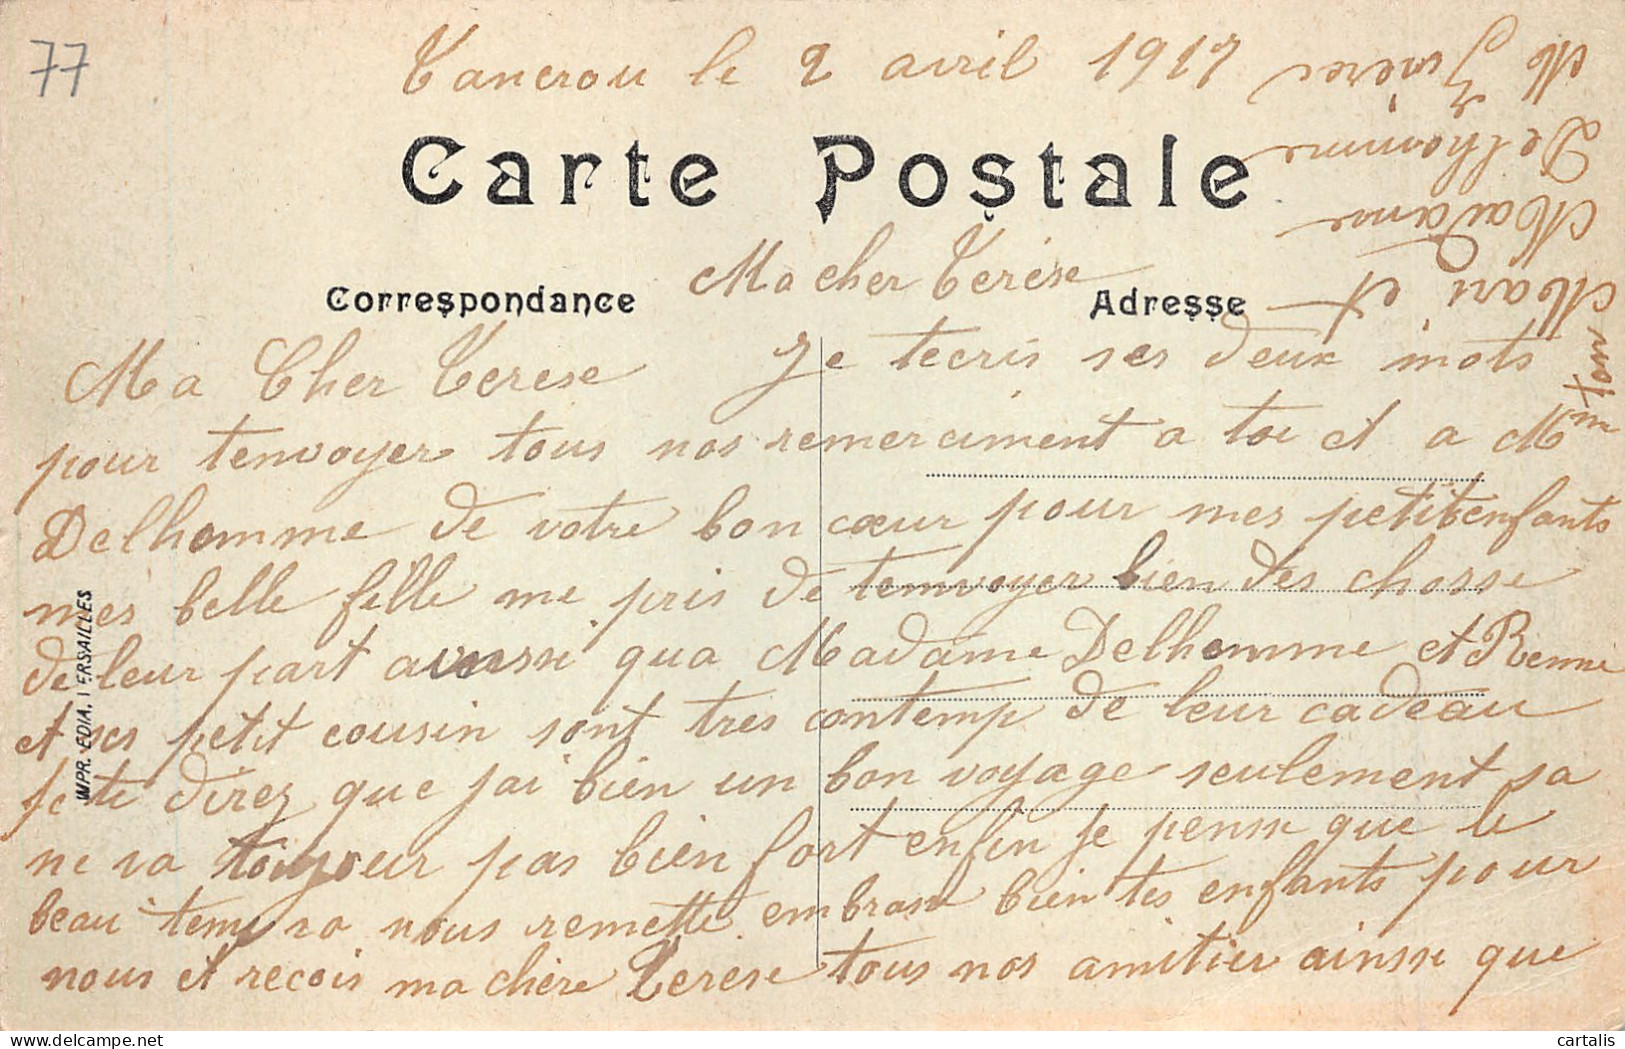 77
Tancrou le 2 avril 1917
Carte Postale
Ma cher Terése
Correspondance
Adresse
Ma Cher Terese Je tecris ses deux mots
pour tenvoyer tous nos remerciment a toi et a Mm
Delhomme de votre bon cœur pour mes petitenfants
mes belle fille me pris de tenvoyer bien des chosse
de leur part aussi qua Madame Delhomme et Renne
et ses petit cousin sont tres contemp de leur cadeau
je te direz que jai bien un bon voyage seulement sa
ne va toujour pas bien fort enfin je pense que le
beau temp va nous remette embrasse bien tes enfants pour
nous et recois ma chère Terese tous nos amitier ainsse que
ton
Mari et
Madame
Delhomme
M
IMPR. EDIA. VERSAILLES
cartalis